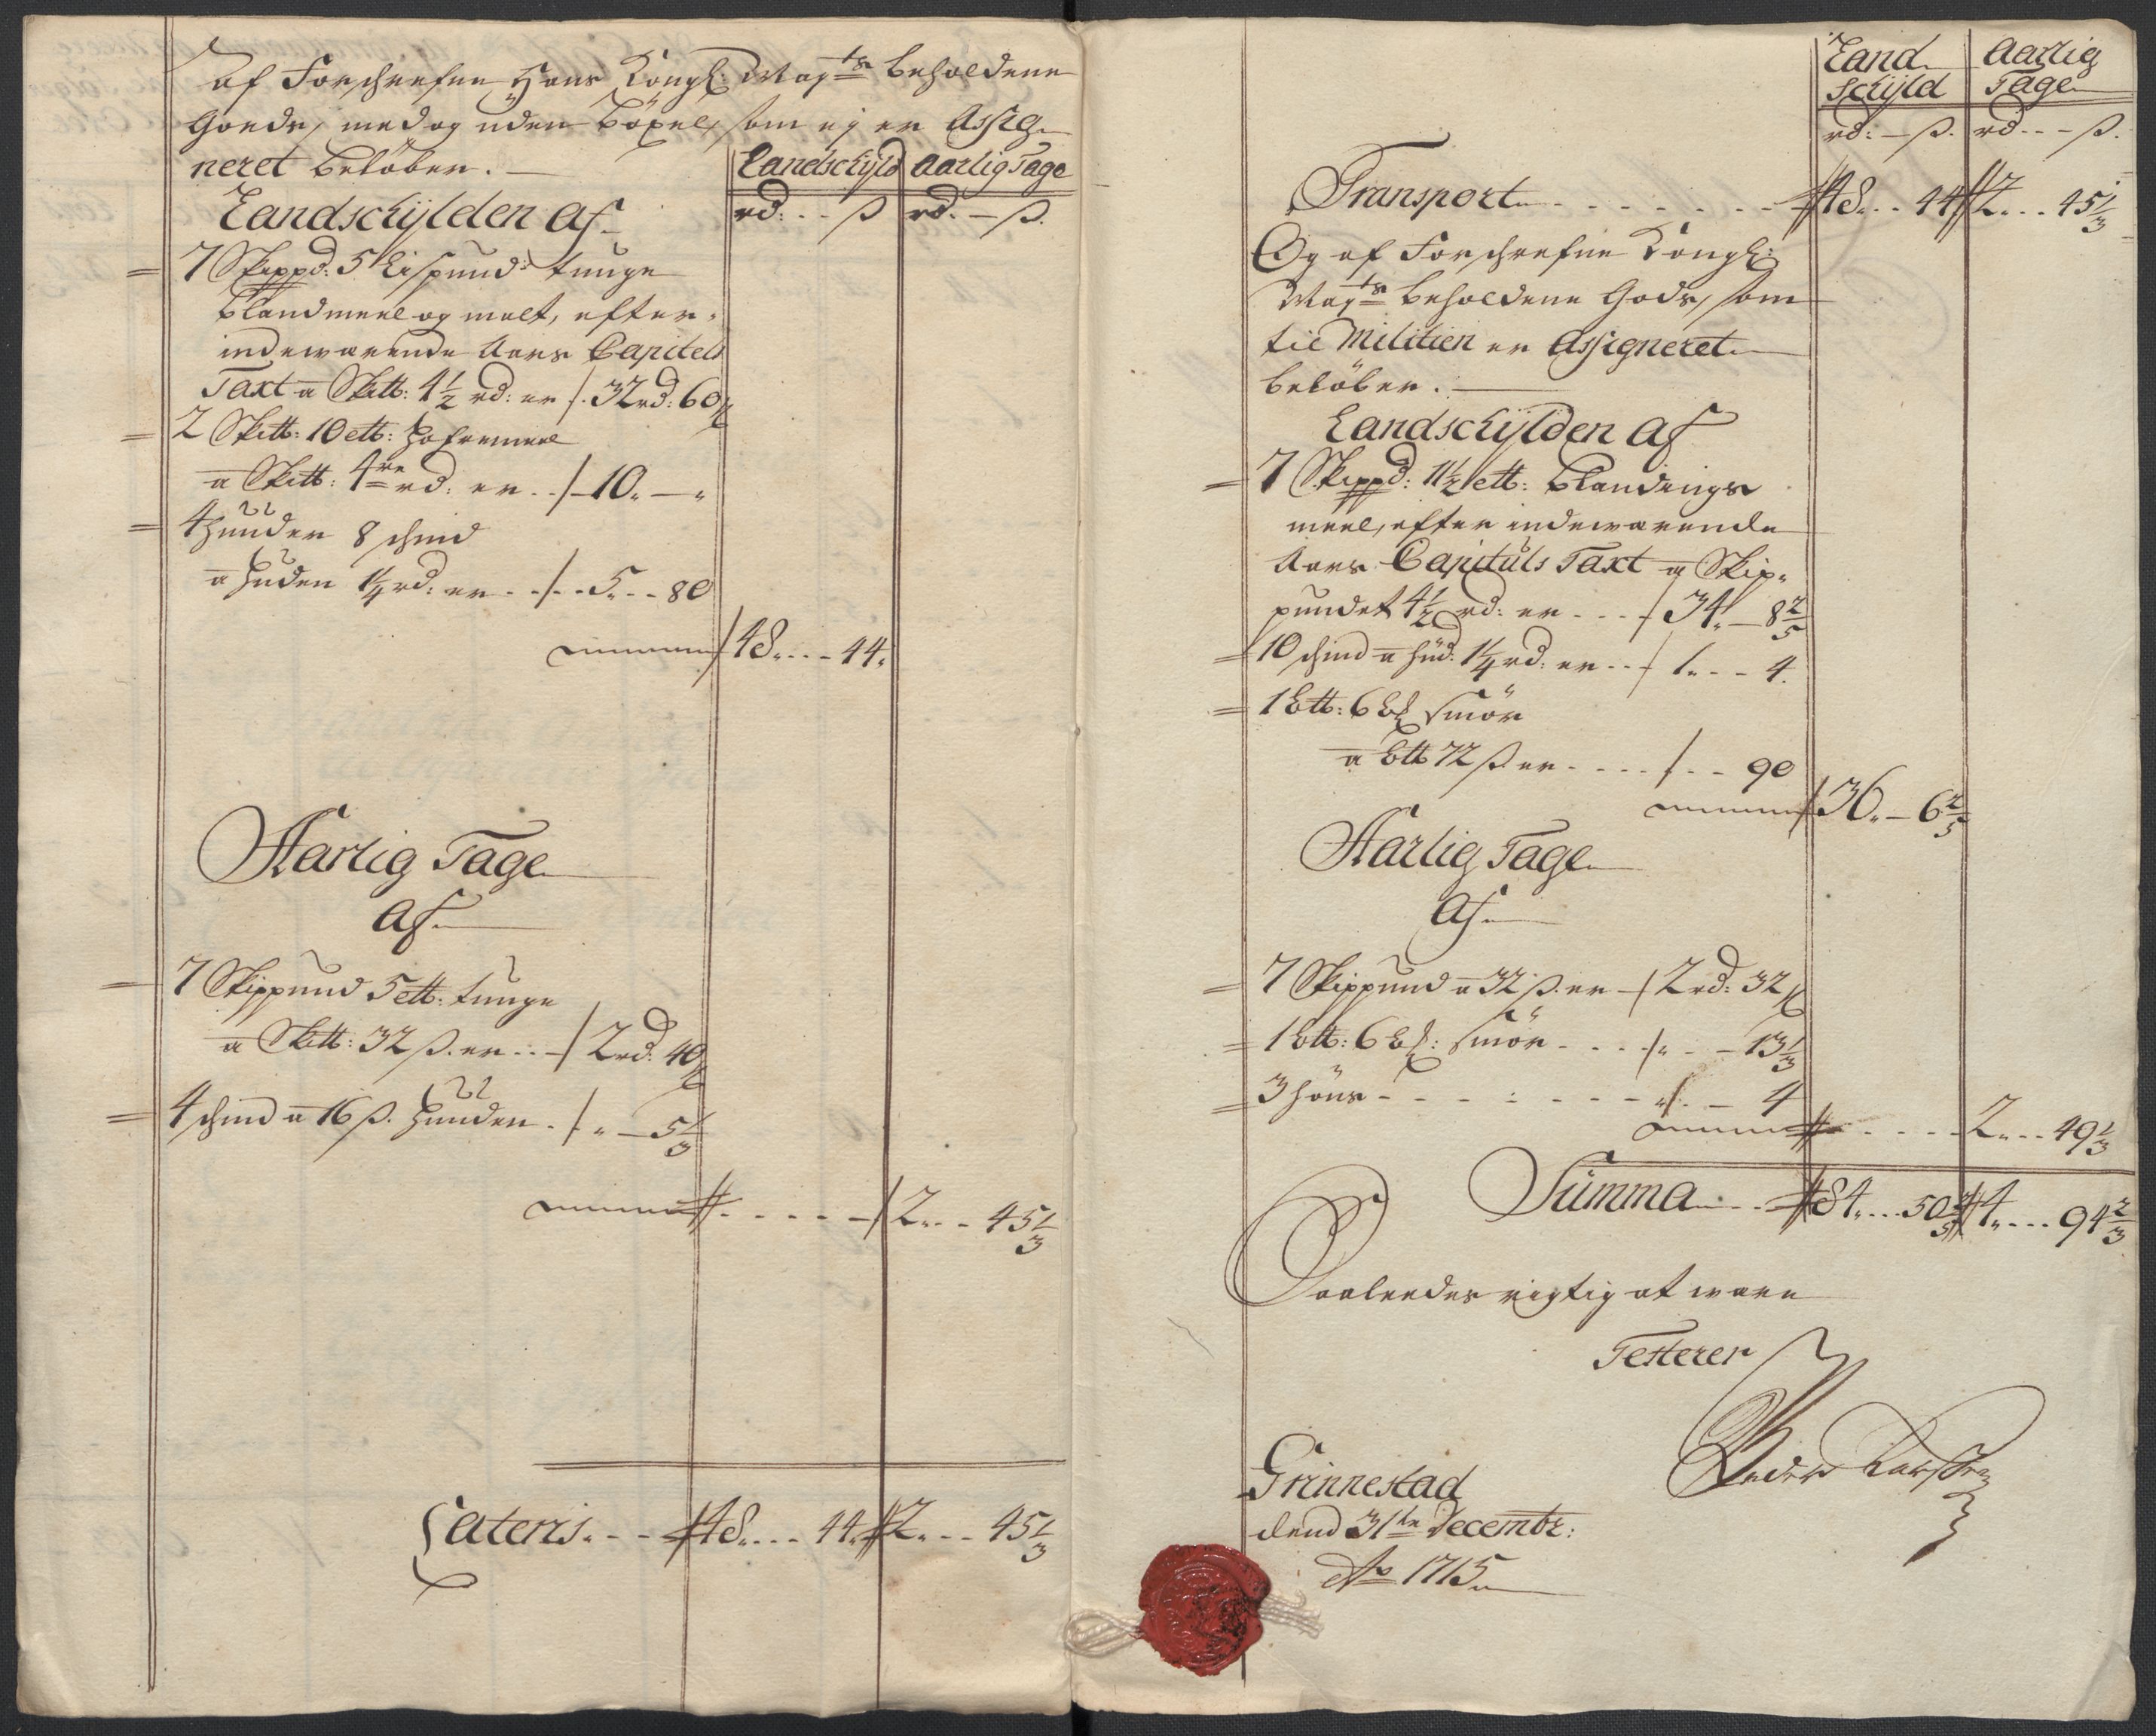 af Forschrefne Hans Kongl: Mayts beholdene
Goeds, med og uden böxel, som ej er Assig-
neret belöber.
Landschyld Aarlig Tage
rd: - - ß rd. - ß.
Landschylden af
7 Skippd: 5 Lispund: tunge
blandmeel og malt, efter
indewærende Aars Capitels
Taxt a Sk℔: 4½ rd: er /. 32 rd: 60 ß
2 Sk℔: 10 l℔: hafremeel
a Sk℔: 4re rd: er . . /. 10. — "
4 huuder 8 schind
a huden 1¼ rd: er . . /. . 5. . . 80
/ 48. . . . 44.
Aarlig Tage
af
7 Skippund 5 l℔: tunge
a Sk℔: 32 ß. er . . / 2 rd: 40 ß
4 schind a 16 ß. huuden . /. " — 5⅓
/ 2. . . 45⅓
Lateris. - - 48. . . . 44. 2. . . 45⅓
Land-
schyld
Aarlig
Tage
rd: - ß. rd. - - ß.
Transport - - - - - 48. . . 44 2. . . 45⅓
Og af Forschrefne Kongl:
Mayts beholdene Gods, som
til Militien er Assigneret
belöber.
Landschylden af
7 Skippd: 11½ l℔: blandings
meel, efter indewærende
Aars Capituls Taxt a Skip-
pundet 4½ rd: er - - - / 34. — 8⅖
10 schind a hud: 1¼ rd: er - - / 1. - - 4.
1 b℔: 6 bl smör
a b℔ 72 ß er - - - - /. - - 90
/ 36. — 6⅖
Aarlig Tage
af
7 Skippund a 32 ß. er / 2 rd: 32 ß
1 b℔: 6 bl: smör - - - /. " - - 13⅓
3 höns - - - - - - - /. — 4
2. . . 49⅓
Summa - - 84. . . . 50⅖ 4. . . . 94⅔
Saaledes rigtig at være
Testerer
Grinnestad
dend 31te Decembr:
Ao 1715
Peder